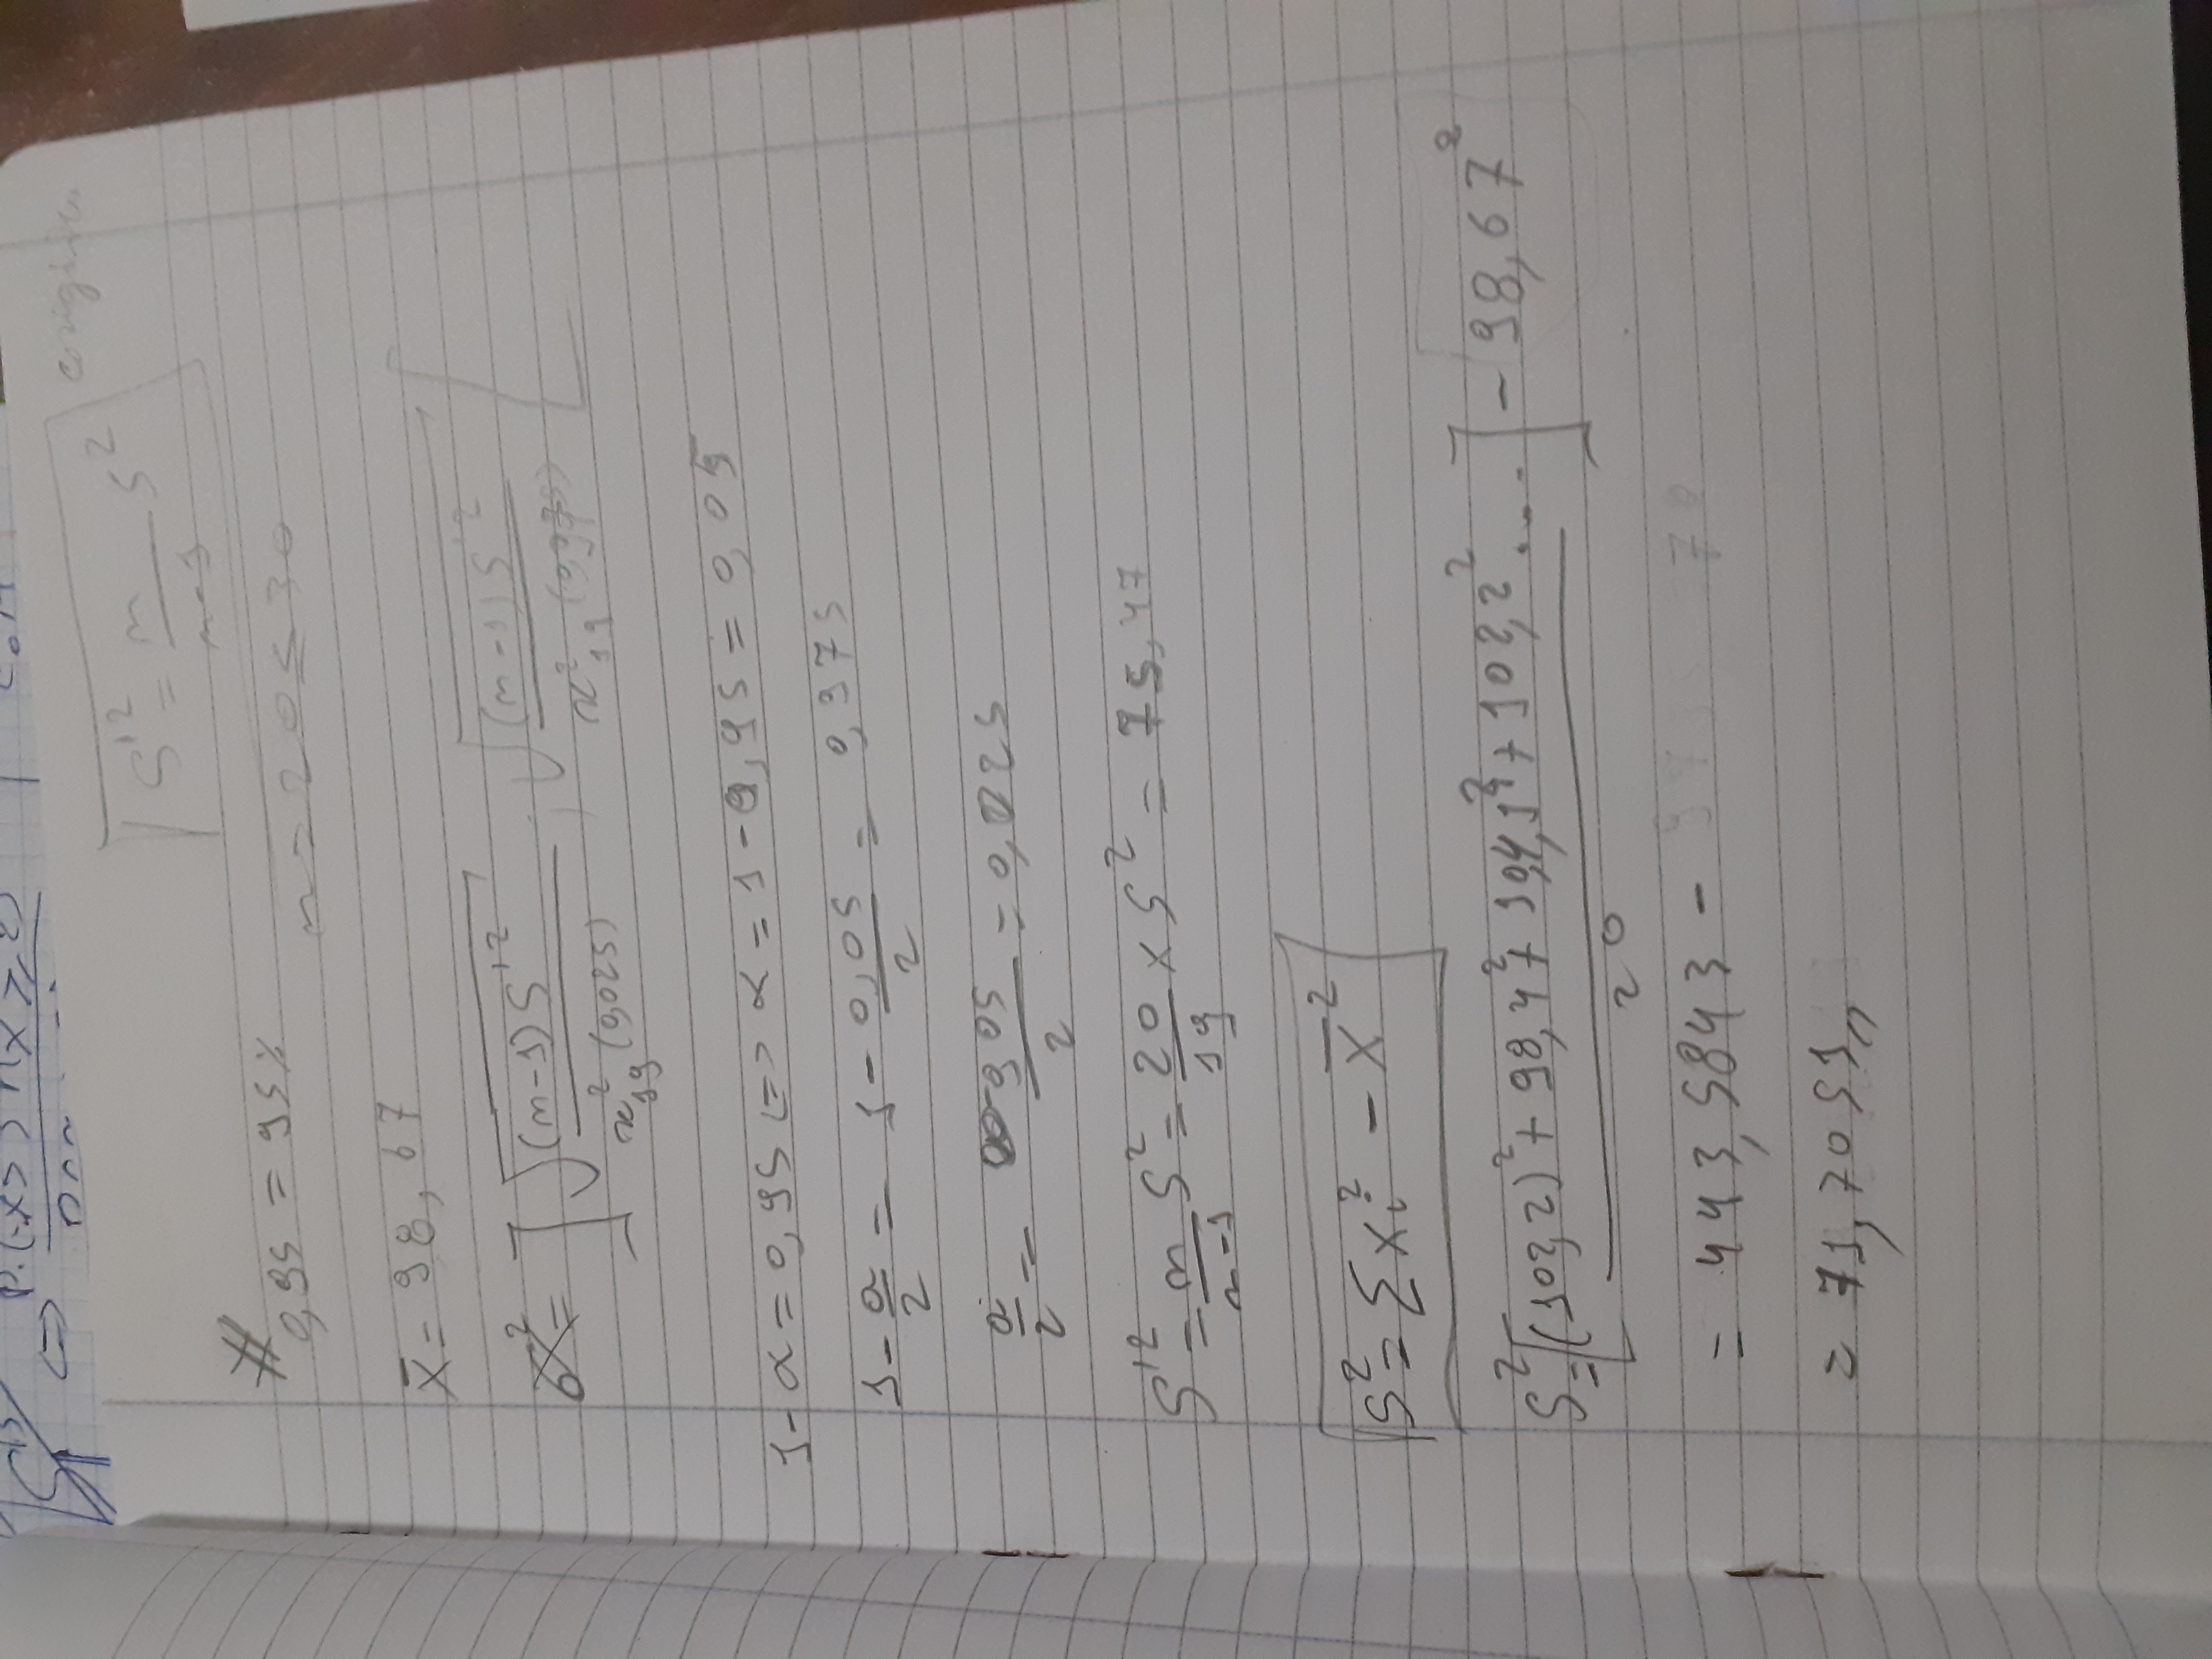 ⇔ P(X> ∩(X ≥ 2)
S'² = n/(n-1) S²
0,95 = 95%
n = 20 ≤ 30
x̄ = 98,67
σ² = ]√((n-1)S'²/x²₁₉(0,025)) ; √((n-1)S'²/x²₁₉(0,975))[
1-α = 0,95 <=> α = 1-0,95 = 0,05
1 - a/2 = 1 - 0,05/2 = 0,975
a/2 = 0,05/2 = 0,025
S'² = n/(n-1) S² = 20/19 x S² = 75,47
S² = Σxi² - x̄²
S² = [((102,2)² + 98,4² + 104,1² + 102,2² ....)/20] - 98,67²
= 443,5843 -
= 71,7051,,